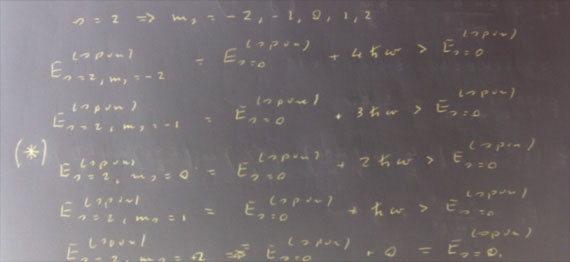 s = 2 ⇒ m_s = -2, -1, 0, 1, 2
E^(spin)_{s=2, m_s=-2} = E^(spin)_{s=0} + 4ħω > E^(spin)_{s=0}
E^(spin)_{s=2, m_s=-1} = E^(spin)_{s=0} + 3ħω > E^(spin)_{s=0}
(*) E^(spin)_{s=2, m_s=0} = E^(spin)_{s=0} + 2ħω > E^(spin)_{s=0}
E^(spin)_{s=2, m_s=1} = E^(spin)_{s=0} + ħω > E^(spin)_{s=0}
E^(spin)_{s=2, m_s=2} = E^(spin)_{s=0} + 0 = E^(spin)_{s=0}.